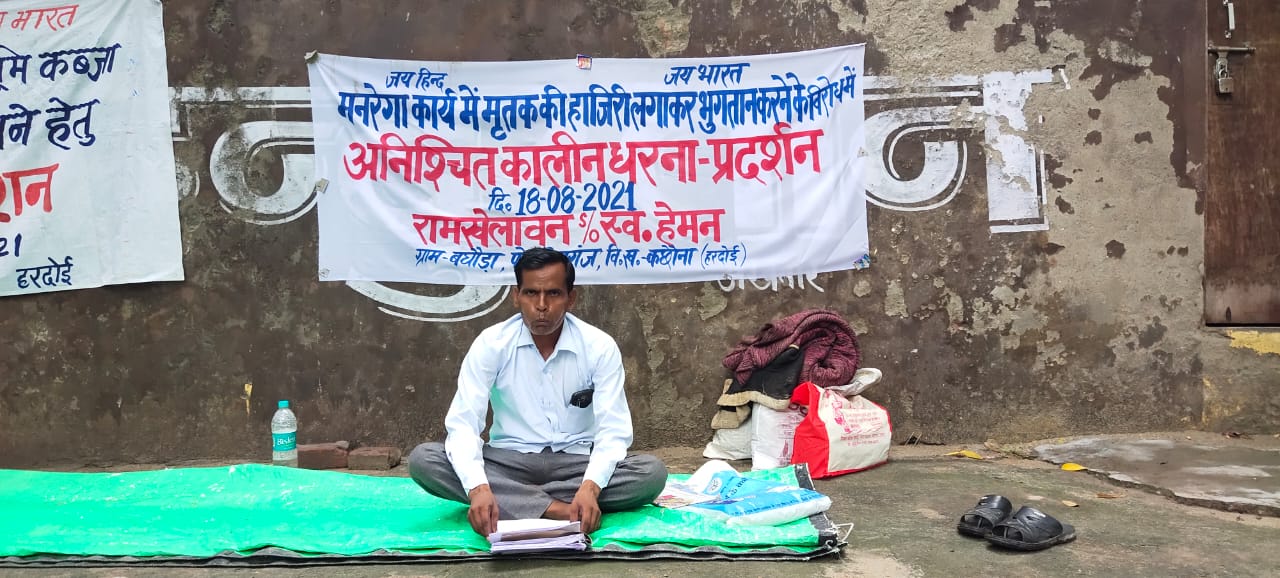 भारत
भूमि कब्जा
हेतु
21
हरदोई
जय हिन्द जय भारत
मनरेगा कार्य में मृतक की हाजिरी लगाकर भुगतान करने के विरोध में
अनिश्चित कालीन धरना-प्रदर्शन
दि० 18-08-2021
रामखेलावन s/o स्व. हेमन
ग्राम-बघौड़ा, गंज, वि.ख.-कछौना (हरदोई)